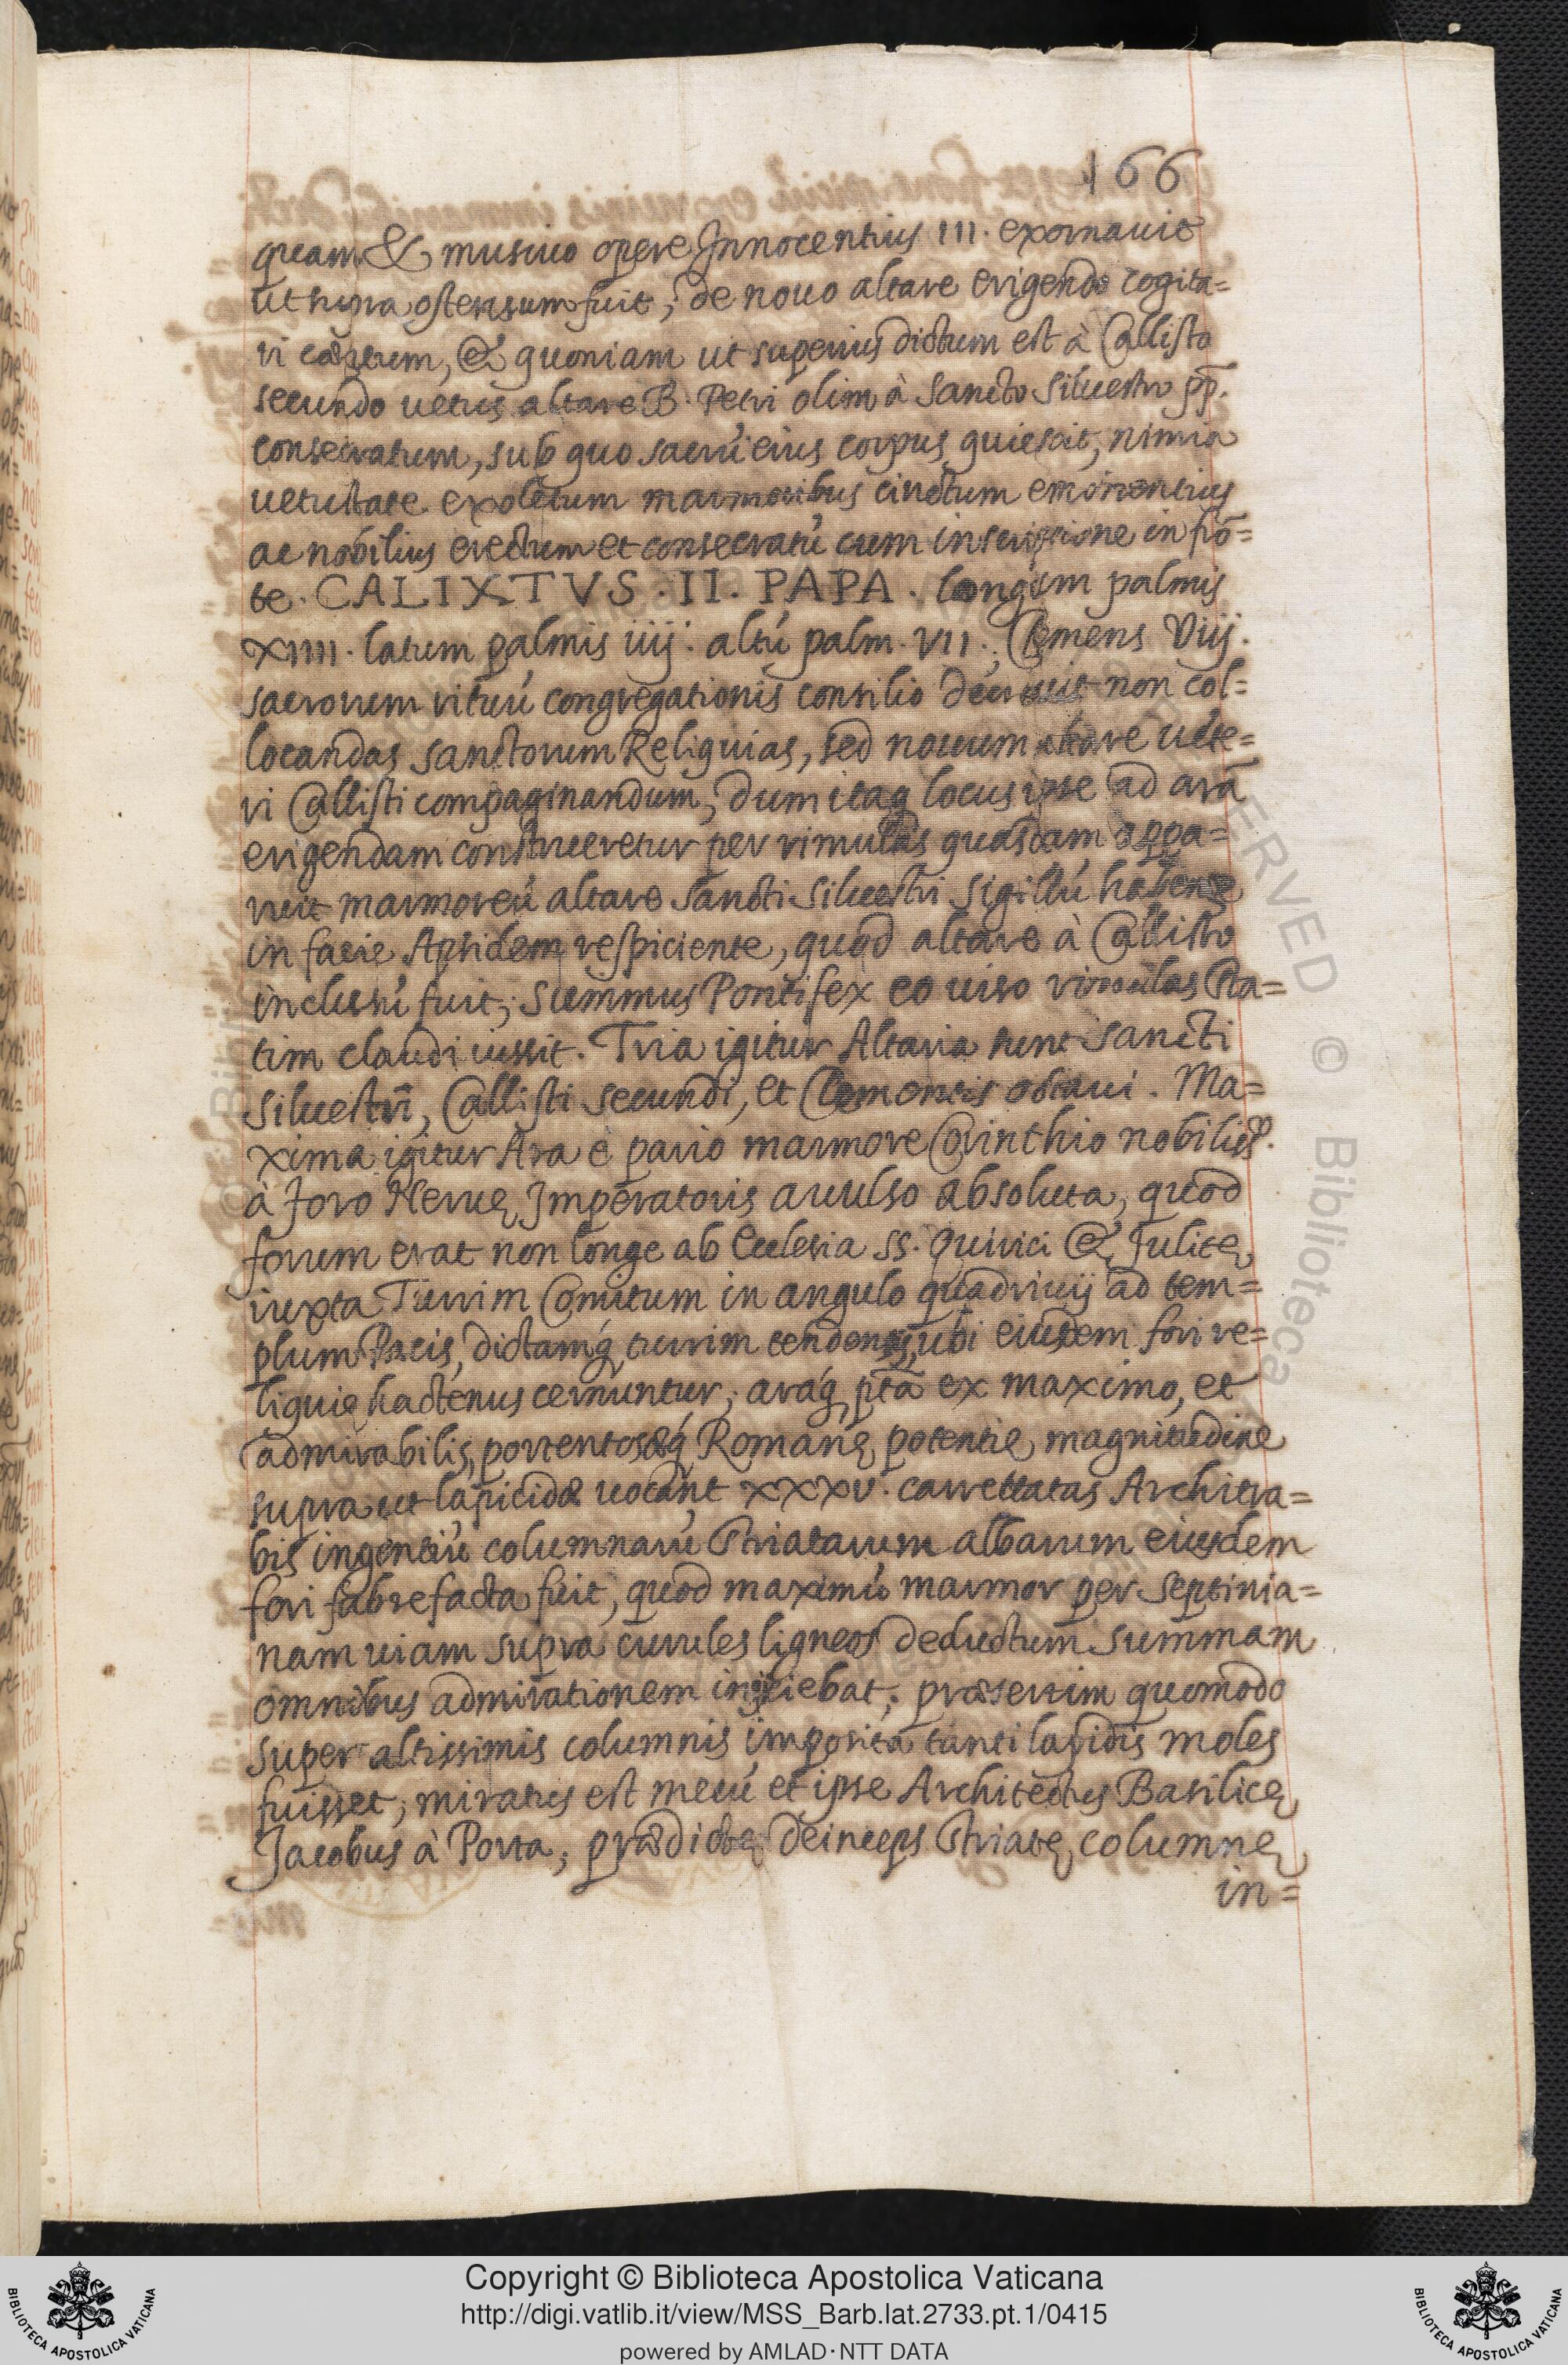 166
quam & musiuo opere Innocentius III. exornauit
ut supra ostensum fuit; de nouo altare erigendo cogita=
ri cœptum, & quoniam ut superius dictum est à Callisto
secundo uetus altare B. Petri olim à Sancto Siluestro pp.
consecratum, sub quo sacrú eius corpus quiescit, nimia
uetustate exoletum marmoribus cinctum eminentius
ac nobilius erectum et consecratú cum inscriptione in frō=
te. CALIXTVS. II. PAPA. longum palmis
XIIII. latum palmis iiij. altú palm. VII.; Clemens Viij.
sacrorum rituú congregationis consilio decreuit non col=
locandas sanctorum Reliquias, sed nouum altare uete=
ri Callisti compaginandum, dum itaq locus ipse ad arā
erigendam construeretur per rimulas quasdam appa=
ruit marmoreú altare Sancti Siluestri sigillú habens
in facie Apsidem respiciente, quod altare à Callisto
inclusú fuit; Summus Pontifex eo uiso rimulas sta=
tim claudi iussit. Tria igitur Altaria sunt Sancti
Siluestri, Callisti secundi, et Clementis octaui. Ma=
xima igitur Ara è pario marmore Corinthio nobiliss.
à foro Neruę Imperatoris auulso absoluta, quod
forum erat non longe ab Ecclesia SS. Quirici & Julitę
iuxta Turrim Comitum in angulo quadriuij ad tem=
plum Pacis, dictamq́ turrim tendentis, ubi eiusdem fori re=
liquię hactenus cernuntur; araq́ pta ex maximo, et
admirabilis, portentosæq́ Romanę potentię magnitudine
supra ut lapicidæ uocant XXXV. carrettatas Architra=
bis ingentiú columnarú striatarum albarum eiusdem
fori fabrefacta fuit, quod maximú marmor per Septinia=
nam uiam supra curules ligneos deductum summam
omnibus admirationem iniiciebat; præsertim quomodo
super altissimis columnis imposita tanti lapidis moles
fuisset; miratus est mecú et ipse Architectus Basilicę
Jacobus à Porta; prædictę deinceps striatę columnę
in=
Copyright © Biblioteca Apostolica Vaticana
http://digi.vatlib.it/view/MSS_Barb.lat.2733.pt.1/0415
powered by AMLAD·NTT DATA